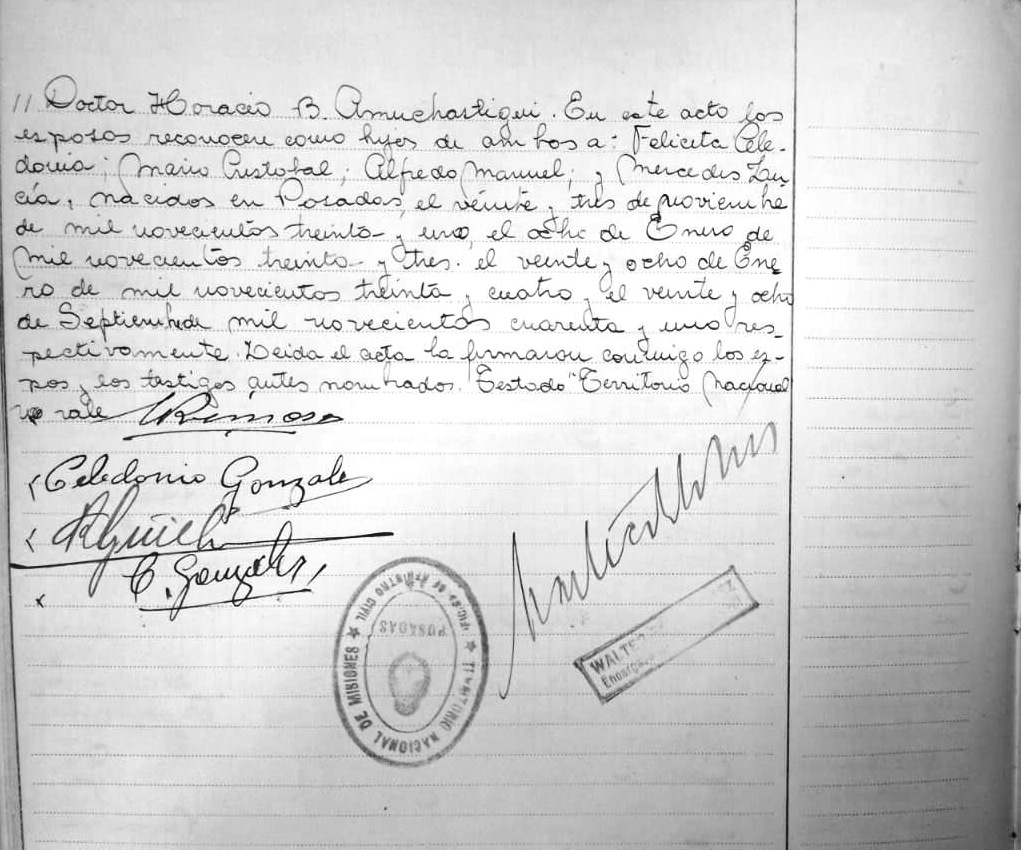 11. Doctor Horacio B. Amuchastigui. En este acto los
esposos reconocen como hijos de ambos a: Felicita Cele-
donia; Mario Cristobal; Alfredo Manuel; y Mercedes Lu-
cía, nacidos en Posadas, el veinte y tres de Noviembre
de mil novecientos treinta y uno, el ocho de Enero de
mil novecientos treinta y tres. el veinte y ocho de Ene-
ro de mil novecientos treinta y cuatro y el veinte y ocho
de Septiembre de mil novecientos cuarenta y uno res-
pectivamente. Leida el acta la firmaron conmigo los es-
pos y los testigos antes nombrados. Testado "Territorio Nacional
no vale
Celedonio Gonzalez
C. Gonzalez
OFICINA DE REGISTRO CIVIL
POSADAS
TERRITORIO NACIONAL DE MISIONES
WALTER